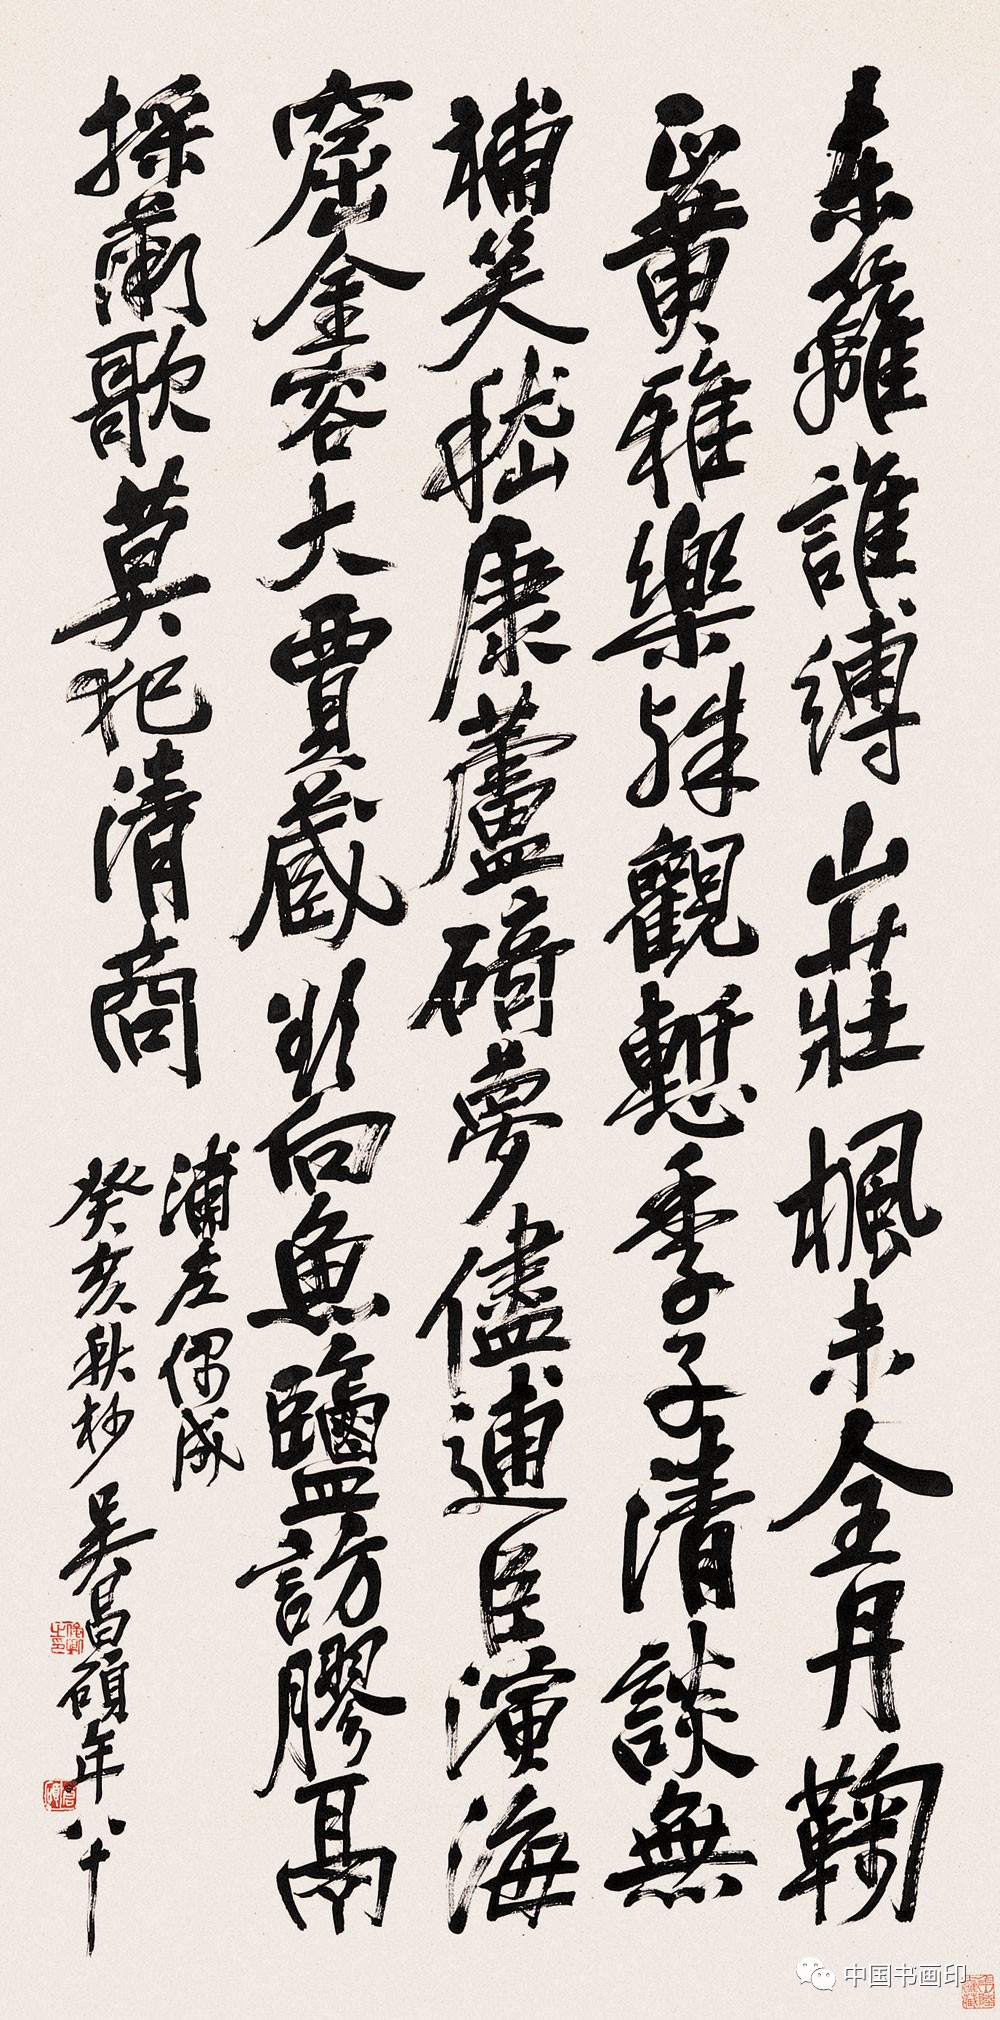 東籬誰縛山莊楓未全丹鞠
正黃雅樂殊觀慙季子清談無
補笑嵇康蘆碕夢儘逋臣演海
窟金容大賈藏欲向魚鹽訪膠鬲
採蘭歌莫犯清商
浦左偶成
癸亥秋杪吳昌碩年八十
中国书画印